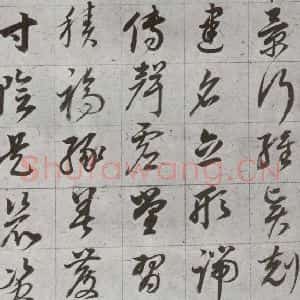 景行維賢剋
建名立形端
傳聲虛堂習
積福緣善慶
寸陰是競資
Shufawang.CN